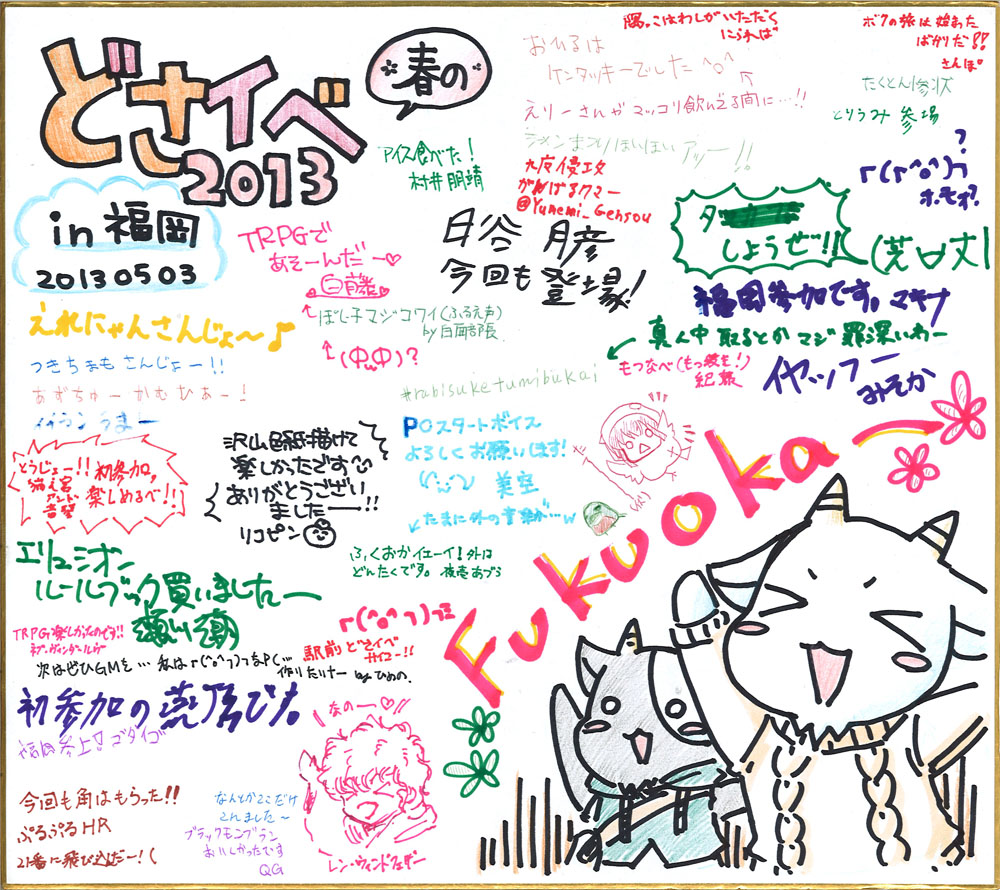 どさイベ
2013
春の
in 福岡
20130503
隅っこはわしがいただく
ボクの旅は始まった
ばかりだ!!
さんぽ
おひるは
ケンタッキーでした^o^
えりーさんがマッコリ飲んでる間に…!!
アッー!!
アイス食べた!
村井朋靖
がんばるクマー
@Yumemi_Gensou
とりうみ 参場
?
r(r^o^)?
ホモォ?
しようぜ!!
TRPGで
あそーんだー♡
白藤
日谷 月彦
今回も登場!
福岡参加です。マキナ
ぼし子マジコワイ(ふるえ声)
by白面部長
(ΦωΦ)?
真ん中取るとかマジ罪深いわー
もつなべ(もつ鍋を!)
イヤッフー
みそか
えれにゃんさんじょ〜♪
つきちゃもさんじょー!!
あずちゅーかむひあー!
#rabisuketumibukai
POスタートボイス
よろしくお願いします!
美空
たまに外の音楽が…w
とうじょー!!
初参加。
楽しめるべ!!
沢山色紙描けて
楽しかったです
ありがとうござい
ましたー!!
リコピン
ふくおかイエーイ!外は
どんたくです。
Fukuoka
エリュシオン
ルールブック買いましたー
TRPG楽しかったのぜ!!
r(^o^ヮ)
駅前 どさイベ
サイコー!!
次はぜひGMを…私はr(^o^ヮ)ってなPC
作りたいなー byひめの.
初参加の燕乃です。
福岡参上!ゴダイゴ
なのー♡
レン・ウィンドフェザー
今回も角はもらった!!
ぷるぷるHR
21番に飛び込だー!(
なんとかここだけ
これました〜
ブラックモンブラン
おいしかったです
QG